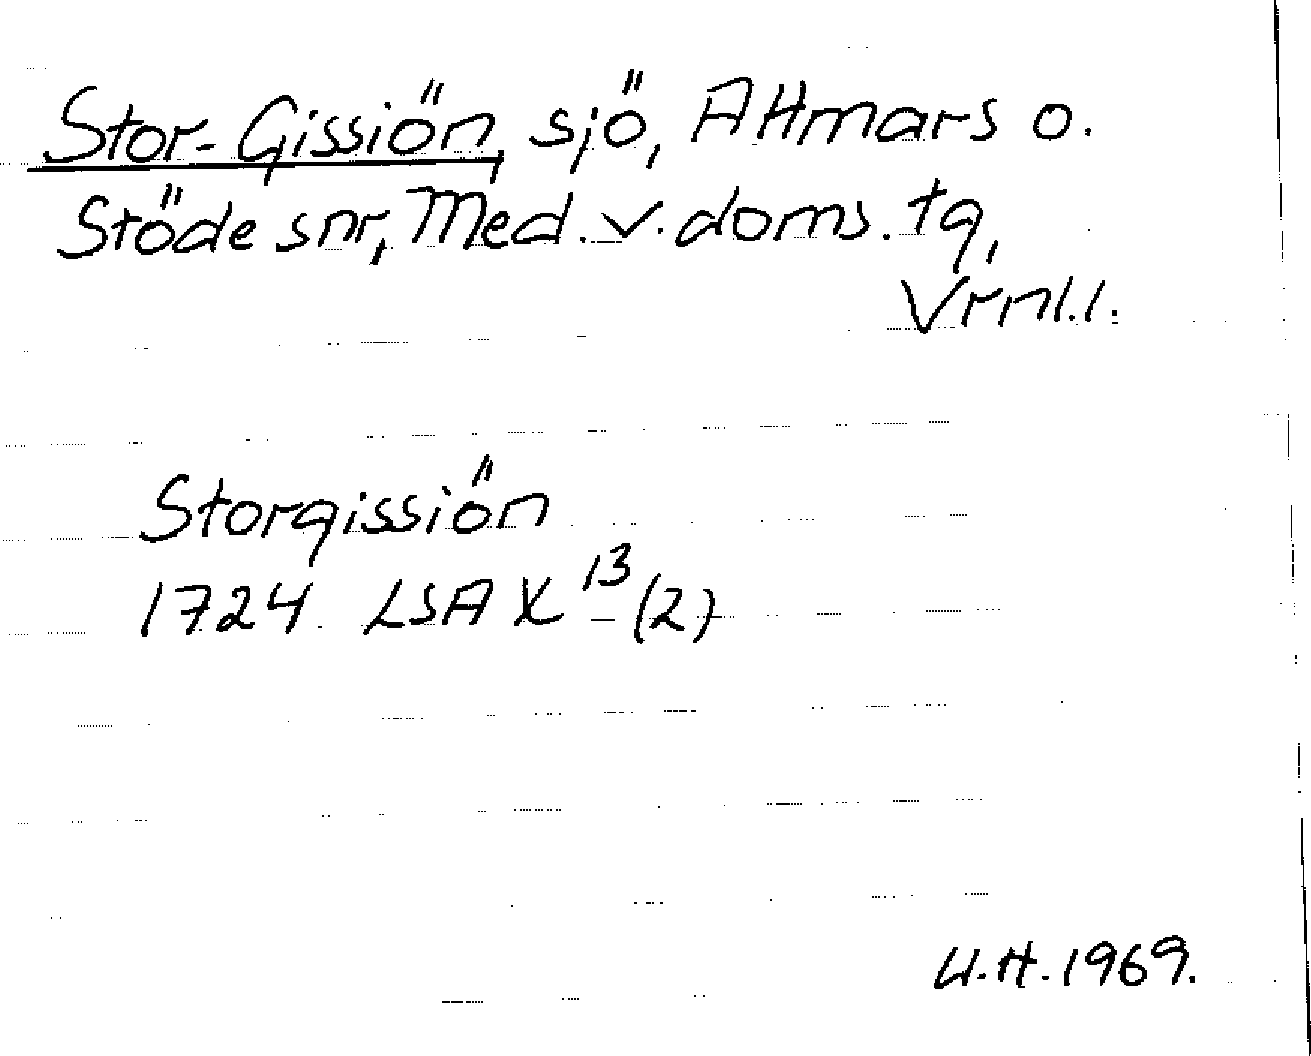 Stor-Gissiön, sjö, Attmars o.
Stöde snr, Med. v. doms. tg,
Vrnl. l.
Storgissiön
1724 LSA X 13 (2)
U.H. 1969.